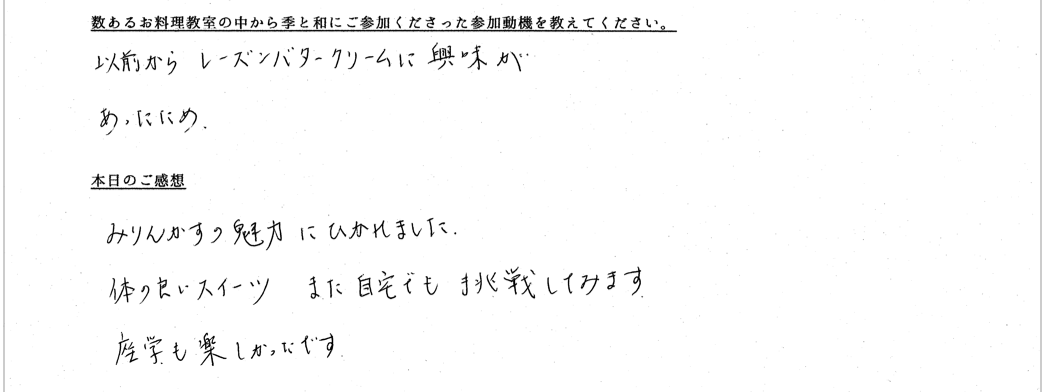 数あるお料理教室の中から季と和にご参加くださった参加動機を教えてください。
以前から レーズンバタークリームに 興味が
あったため.
本日のご感想
みりんかすの魅力にひかれました.
体の良いスイーツ また自宅でも 挑戦してみます
座学も楽しかったです